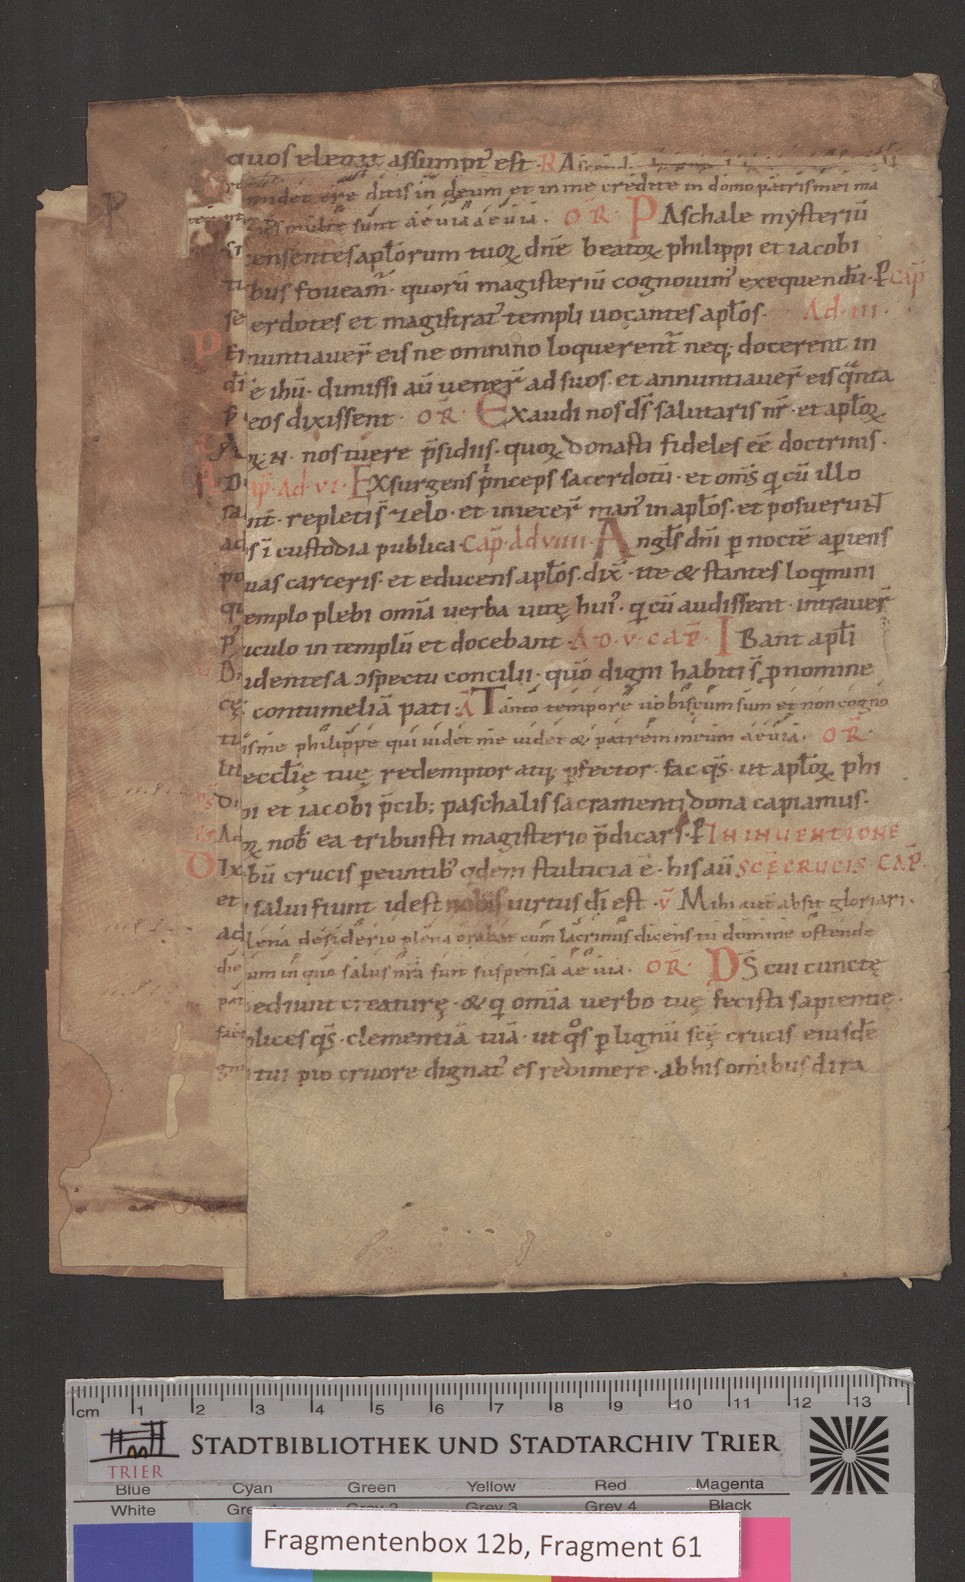 quos elegit assumptꝰ est · R A
ditis in deum et in me credite in domo patris mei ma
multe sunt aeuia aeuia . OR̄ · PAschale mysteriū
ensentes apl̄orum tuoꝝ dn̄e beatoꝝ philippi et iacobi
bus foueam̄ · quorū magisteriū cognouimꝰ exequendū · P Cap̄
erdotes et magistratꝰ templi uocantes apl̄os · Ad · iii ·
nuntiauer̄ eis ne omnino loquerent̄ neq; docerent in
e ihū · dimissi aū uener̄ ad suos · et annuntiauer̄ eis q̄nta
eos dixissent · OR̄ · Exaudi nos ds̄ salutaris nr̄ · et apl̄oꝝ
ꝝ · N · nos tuere p̄sidiis · quoꝝ donasti fideles eē doctrinis ·
ap̄ · Ad · vi · Exsurgens p̄nceps sacerdotū · et om̄s q̄ cū illo
nt̄ · repleti s̄ zelo · et iniecer̄ manꝰ in apl̄os · et posuerunt
s ī custodia publica · Cap̄ · Ad viiii · Angl̄s dn̄i ꝑ noctē aperiens
uas carceris · et educens apl̄os · dix̄ · ite & stantes loq̄mini
emplo plebi omīa uerba uitę huiꝰ · q̄ cū audissent · intrauer̄
uculo in templū et docebant · AD · V · CAP̄ · IBant apl̄i
udentes a ɔspectu concilii · quō digni habiti s̄ ꝓ nomine
contumeliā pati · A Tanto tempore uobiscum sum et non cogno
is me philippe qui uidet me uidet & patrem meum aeuia . OR̄ ·
eccl̄ię tuę redemptor atq; ꝑfector · fac q̄s · ut apl̄oꝝ phi
pi et iacobi p̄cib; paschalis sacramenti dona capiamus ·
ꝝ nob̄ ea tribuisti magisterio p̄dicari · P IN INUENTIONE
bū crucis ꝑeuntibꝰ q̄dem stulticia ē · his aū SCĘ CRUCIS · CAP̄ ·
salui fiunt id est nobis uirtus dī est · v̄ Mihi aut absit gloriari ·
lena desiderio plena orabat cum lacrimis dicens tu domine ostende
um in quo salus nrā sunt suspensa aeuia . OR̄ · DS̄ cui cunctę
ediunt creaturę · & q̄ omīa uerbo tuę fecisti sapientię ·
lices q̄s · clementiā tuā · ut q̊s ꝑ lignū scę crucis eiusdē
tui pio cruore dignatꝰ es redimere · ab his omībus dira
cm 1 2 3 4 5 6 7 8 9 10 11 12 13
TRIER
STADTBIBLIOTHEK UND STADTARCHIV TRIER
Blue Cyan Green Yellow Red Magenta
White Grey 3 Grey 4 Black
Fragmentenbox 12b, Fragment 61